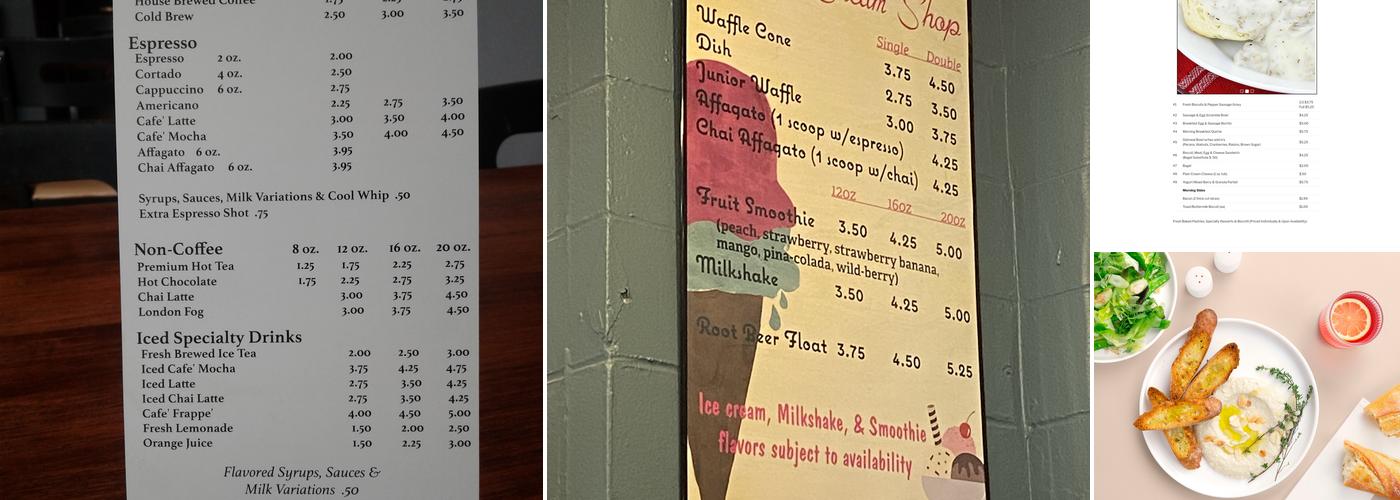 House Brewed Coffee
Cold Brew 2.50 3.00 3.50
Espresso
Espresso 2 oz. 2.00
Cortado 4 oz. 2.50
Cappuccino 6 oz. 2.75
Americano 2.25 2.75 3.50
Cafe' Latte 3.00 3.50 4.00
Cafe' Mocha 3.50 4.00 4.50
Affagato 6 oz. 3.95
Chai Affagato 6 oz. 3.95
Syrups, Sauces, Milk Variations & Cool Whip .50
Extra Espresso Shot .75
Non-Coffee 8 oz. 12 oz. 16 oz. 20 oz.
Premium Hot Tea 1.25 1.75 2.25 2.75
Hot Chocolate 1.75 2.25 2.75 3.25
Chai Latte 3.00 3.75 4.50
London Fog 3.00 3.75 4.50
Iced Specialty Drinks
Fresh Brewed Ice Tea 2.00 2.50 3.00
Iced Cafe' Mocha 3.75 4.25 4.75
Iced Latte 2.75 3.50 4.25
Iced Chai Latte 2.75 3.50 4.25
Cafe' Frappe' 4.00 4.50 5.00
Fresh Lemonade 1.50 2.00 2.50
Orange Juice 1.50 2.25 3.00
Flavored Syrups, Sauces &
Milk Variations .50
Shop
Single Double
Waffle Cone 3.75 4.50
Dish 2.75 3.50
Junior Waffle 3.00 3.75
Affagato (1 scoop w/espresso) 4.25
Chai Affagato (1 scoop w/chai) 4.25
12oz 16oz 20oz
Fruit Smoothie 3.50 4.25 5.00
(peach, strawberry, strawberry banana,
mango, pina-colada, wild-berry)
Milkshake 3.50 4.25 5.00
Root Beer Float 3.75 4.50 5.25
Ice cream, Milkshake, & Smoothie
flavors subject to availability
#1 Fresh Biscuits & Pepper Sausage Gravy
#2 Sausage & Egg Scramble Bowl $4.25
#3 Breakfast Egg & Sausage Burrito
#4 Morning Breakfast Quiche
#5
(Pecans, Walnuts, Cranberries, Raisins, Brown Sugar)
#6 Biscuit, Meat, Egg & Cheese Sandwich
#7 Bagel
#8 Plain Cream Cheese
#9 Yogurt Mixed Berry & Granola Parfait
Morning Sides